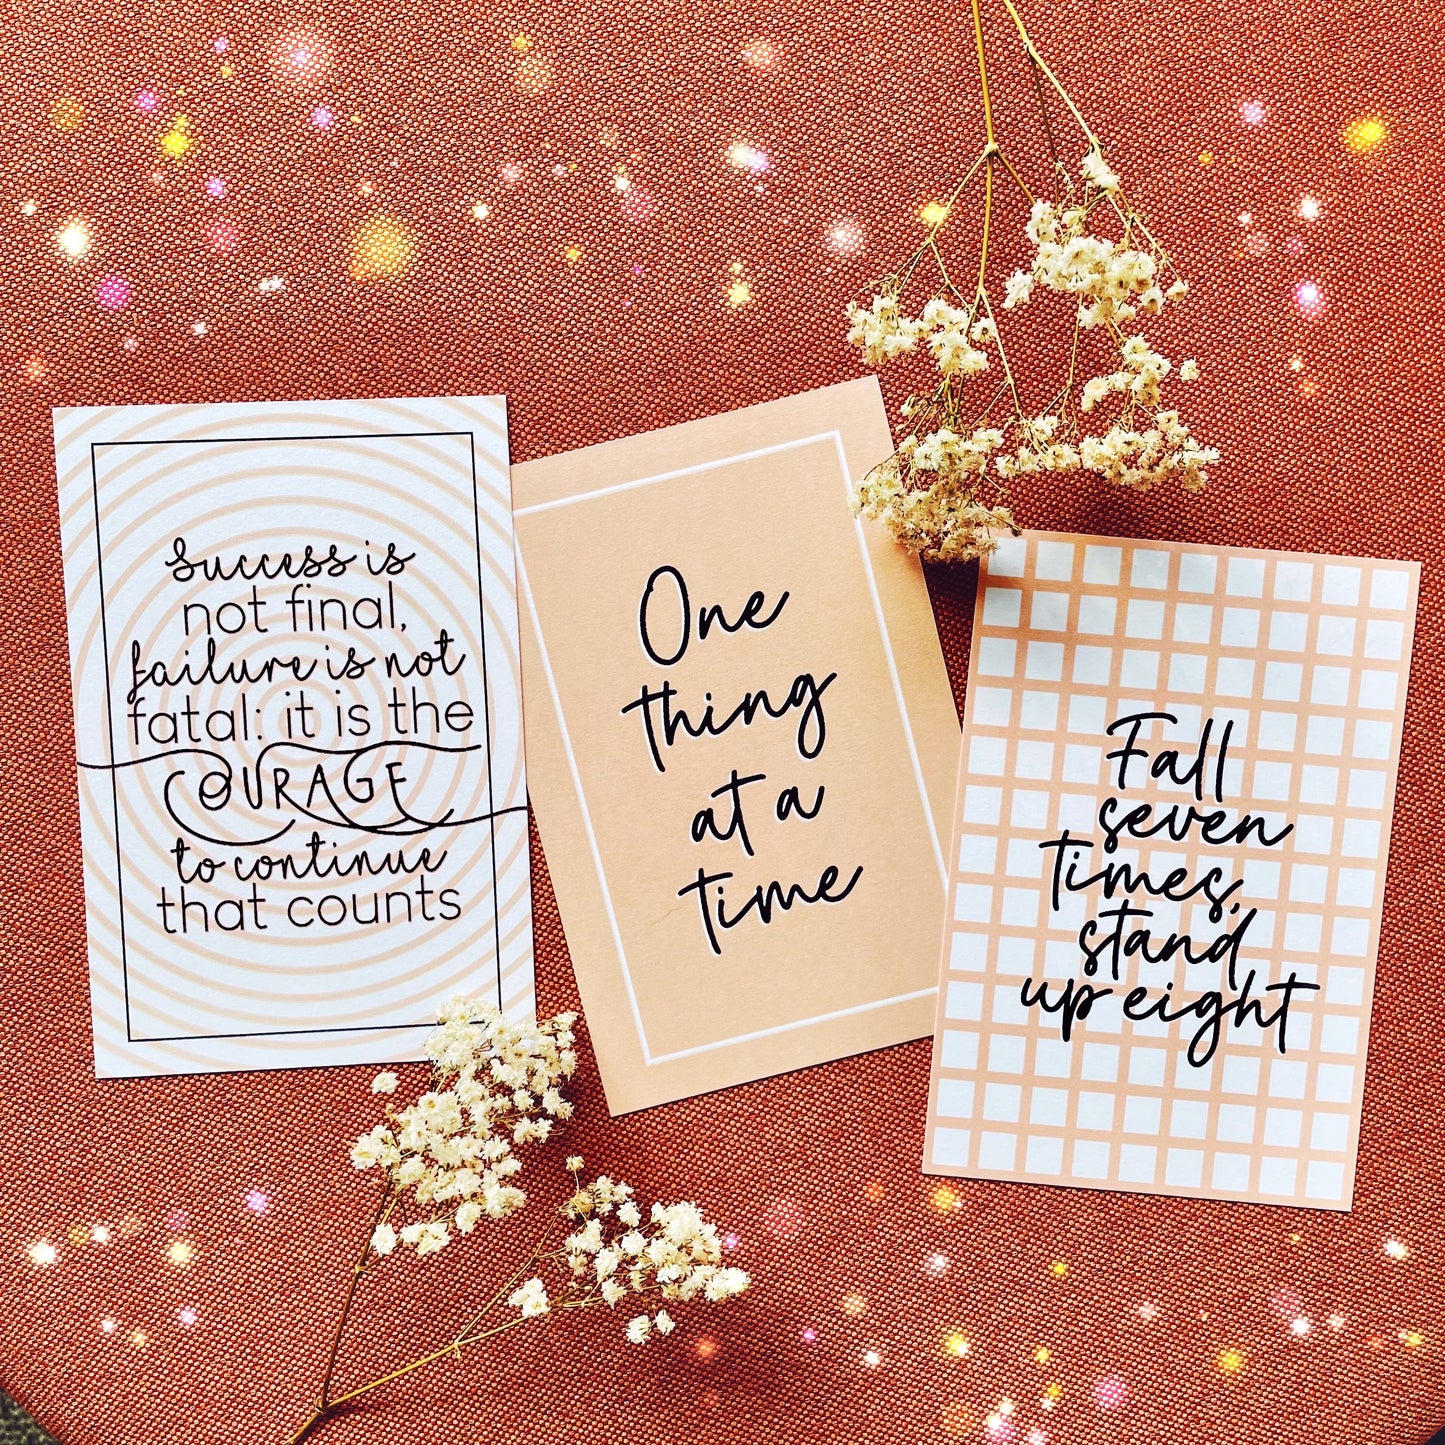 Success is
not final,
failure is not
fatal: it is the
COURAGE
to continue
that counts
One
thing
at a
time
Fall
seven
times,
stand
up eight